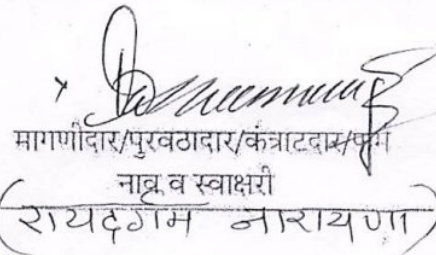 मागणीदार/पुरवठादार/कंत्राटदार/फर्म
नाव व स्वाक्षरी
(रायदगम नारायणा)